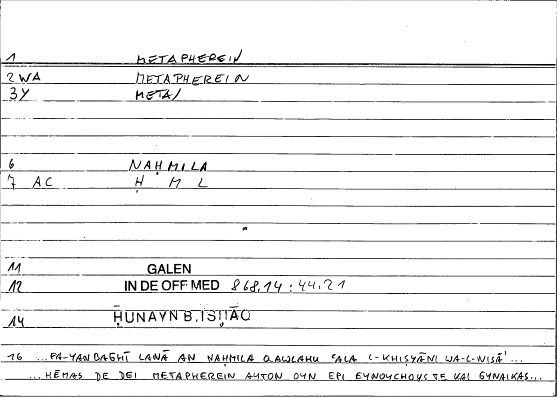 1 METAPHEREIN
2 WA METAPHEREIN
3Y META/
6 NAḤMILA
7 AC Ḥ M L
11 GALEN
12 IN DE OFF MED 868.14 : 44.21
14 ḤUNAYN B. ISḤĀQ
16 ...FA-YANBAGHĪ LANĀ AN NAḤMILA QAWLAHU ʿALA L-KHIṢYĀNI WA-L-NISĀʾ...
...HĒMAS DE DEI METAPHEREIN AUTON OYN EPI EYNOYCHOYS TE KAI GYNAIKAS...